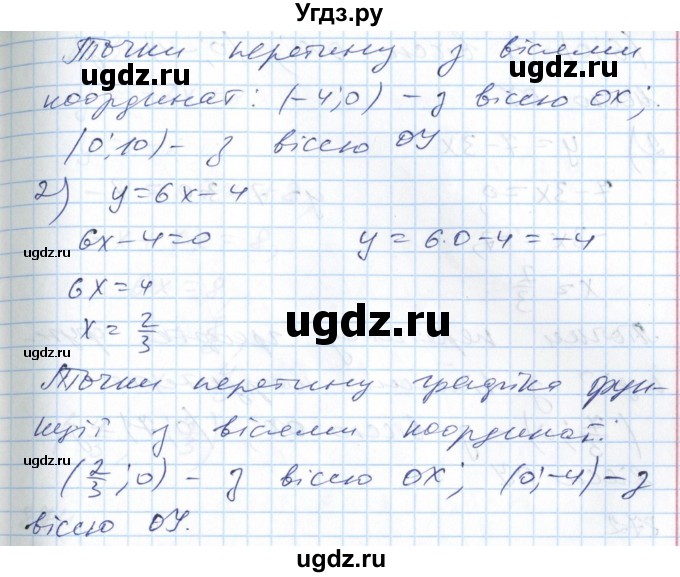 Угдз.ру
Точки перетину з вісями
координат: (-4;0) - з віссю OX;
(0;10) - з віссю ОУ
2) y=6x-4
6x-4=0 y=6·0-4=-4
6x=4
x=2/3
Точки перетину графіка фун-
кції з вісями координат:
(2/3;0) - з віссю OX; (0;-4) - з
віссю ОУ.
ugdz.ru
ugdz.ru
ugdz.ru
ugdz.ru
ugdz.ru
ugdz.ru
ugdz.ru
ugdz.ru
ugdz.ru